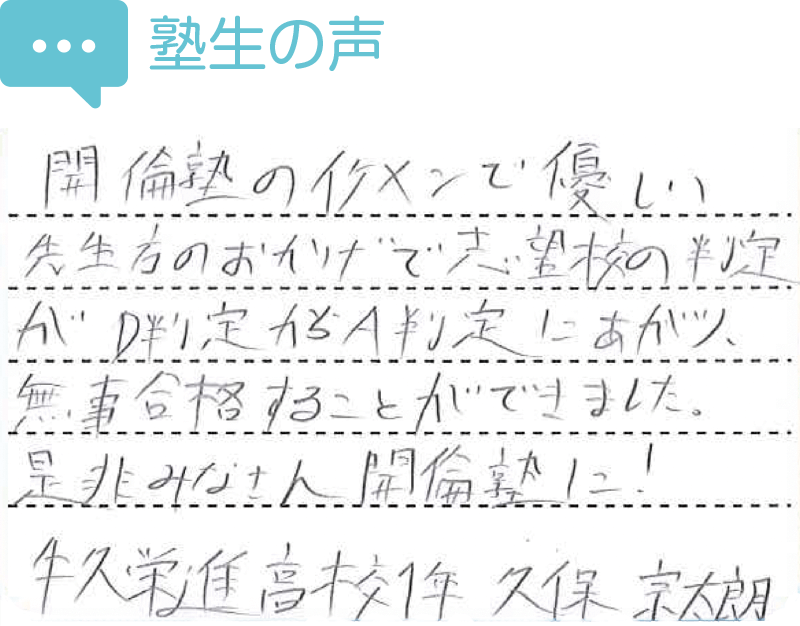 塾生の声
開倫塾のイケメンで優しい
先生方のおかげで志望校の判定
がD判定からA判定にあがり、
無事合格することができました。
是非みなさん開倫塾に!
牛久栄進高校1年 久保 宗太朗